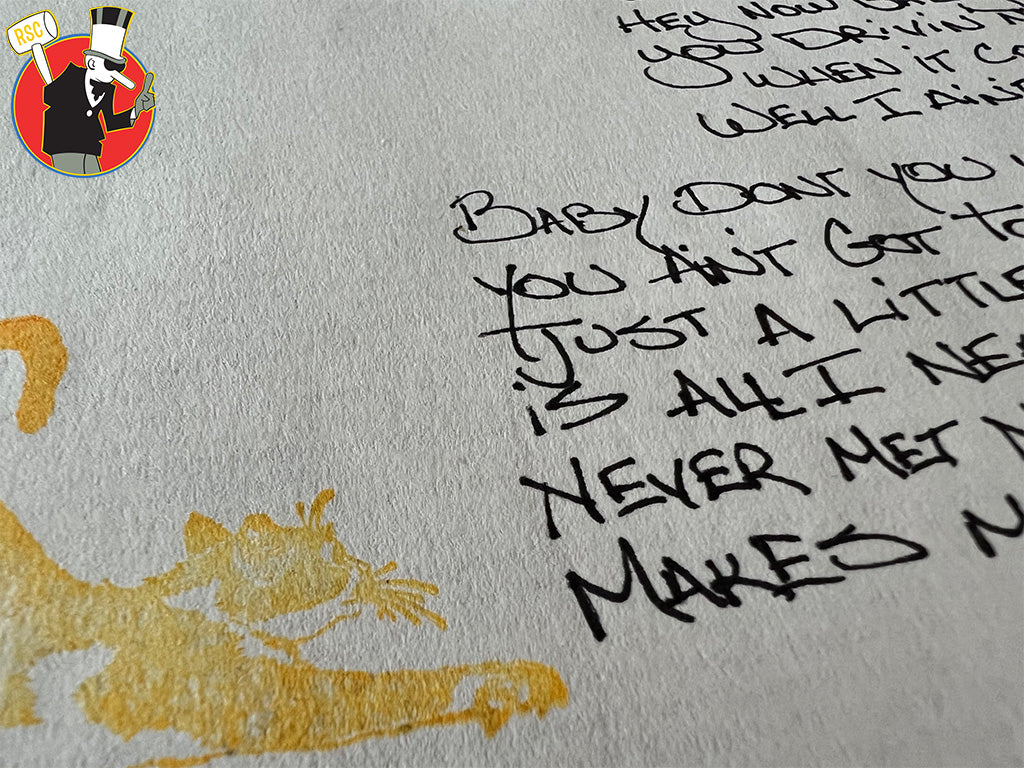 RSC
HEY NOW
YOU DRIVIN'
WHEN IT
WELL I AIN'T
BABY DONT YOU
YOU AIN'T GOT TO
JUST A LITTLE
is ALL I
NEVER MET
MAKES